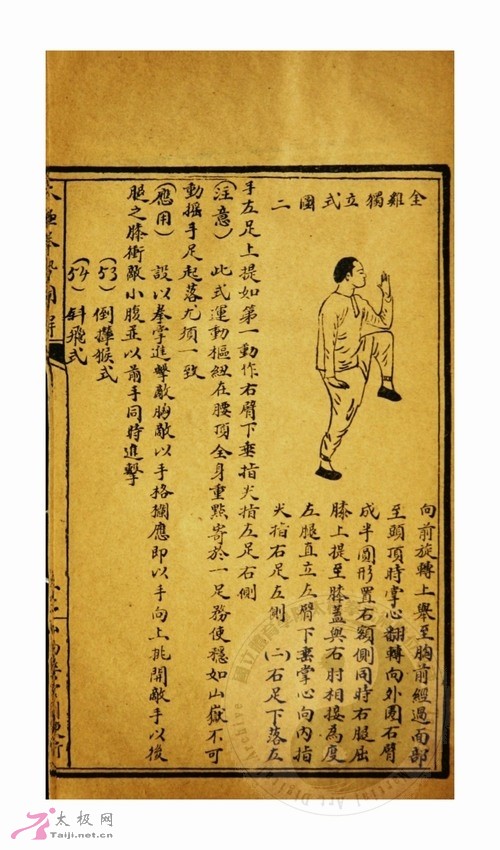 金雞獨立式圖二
向前旋轉上舉至胸前經過面部
至頭頂時掌心翻轉向外圈右臂
成半圓形置右額側同時右腿屈
膝上提至膝蓋與右肘相接為度
左腿直立左臂下垂掌心向內指
尖指右足左側 (二)右足下落左
手左足上提如第一動作右臂下垂指尖指左足右側
(注意) 此式運動樞紐在腰頂全身重點寄於一足務使穩如山嶽不可
動搖手足起落尤須一致
(應用) 設以拳掌進擊敵胸敵以手格攔應即以手向上挑開敵手以後
腿之膝衝敵小腹並以前手同時進擊
(53) 倒攆猴式
(54) 斜飛式
太极网
Taiji.net.cn